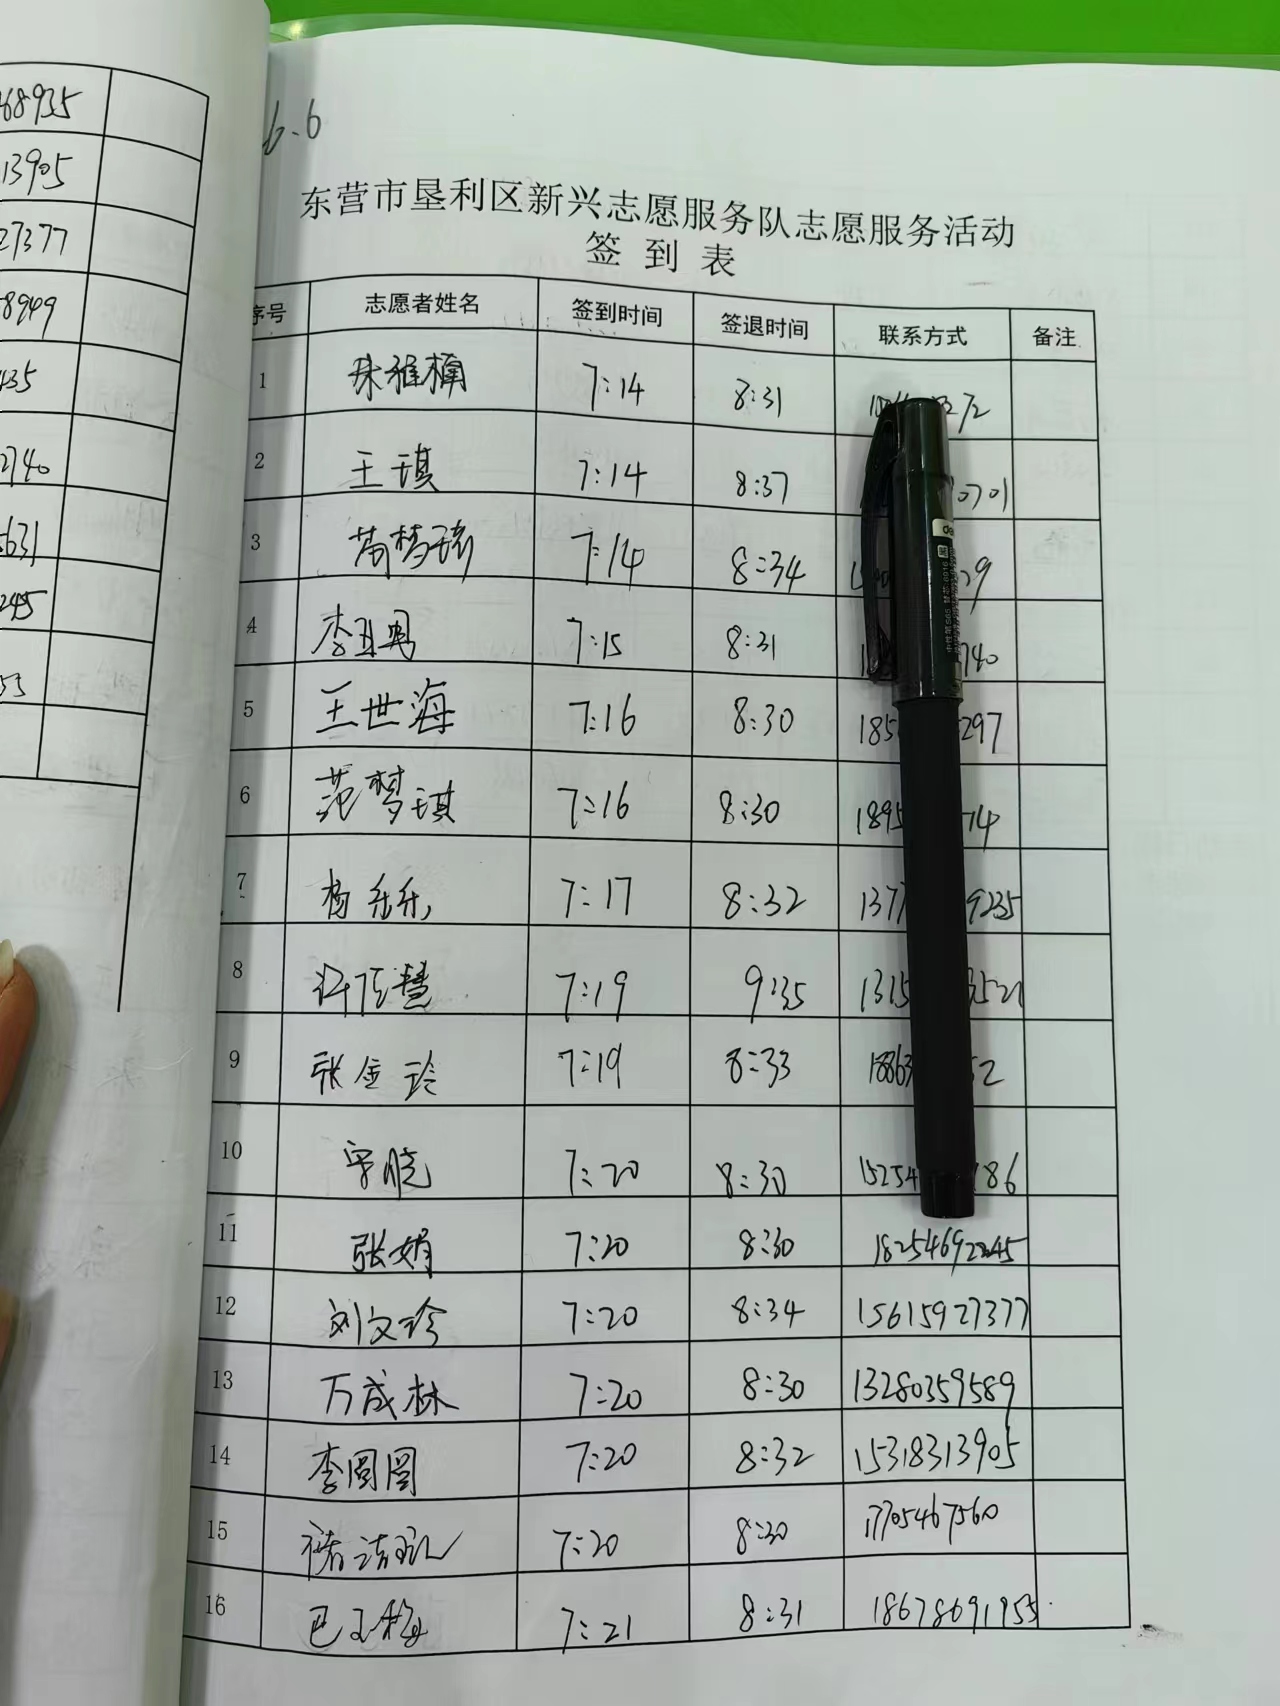 68935
13905
27377
8949
435
2740
5631
245
53
6.6
东营市垦利区新兴志愿服务队志愿服务活动
签到表
序号 志愿者姓名 签到时间 签退时间 联系方式 备注
1 7:14 8:31 272
2 王琪 7:14 8:37 0701
3 7:14 8:34 29
4 7:15 8:31 740
5 王世海 7:16 8:30 185 297
6 范梦琪 7:16 8:30 1895 14
7 杨乐乐 7:17 8:32 1377 9235
8 7:19 9:35 1315 3521
9 张金玲 7:19 8:33 18863 52
10 7:20 8:30 15254 186
11 张娟 7:20 8:30 18254692245
12 刘文珍 7:20 8:34 15615927377
13 万成林 7:20 8:30 13280359589
14 李圆圆 7:20 8:32 15318313905
15 7:20 8:30 17705467560
16 7:21 8:31 18678691953